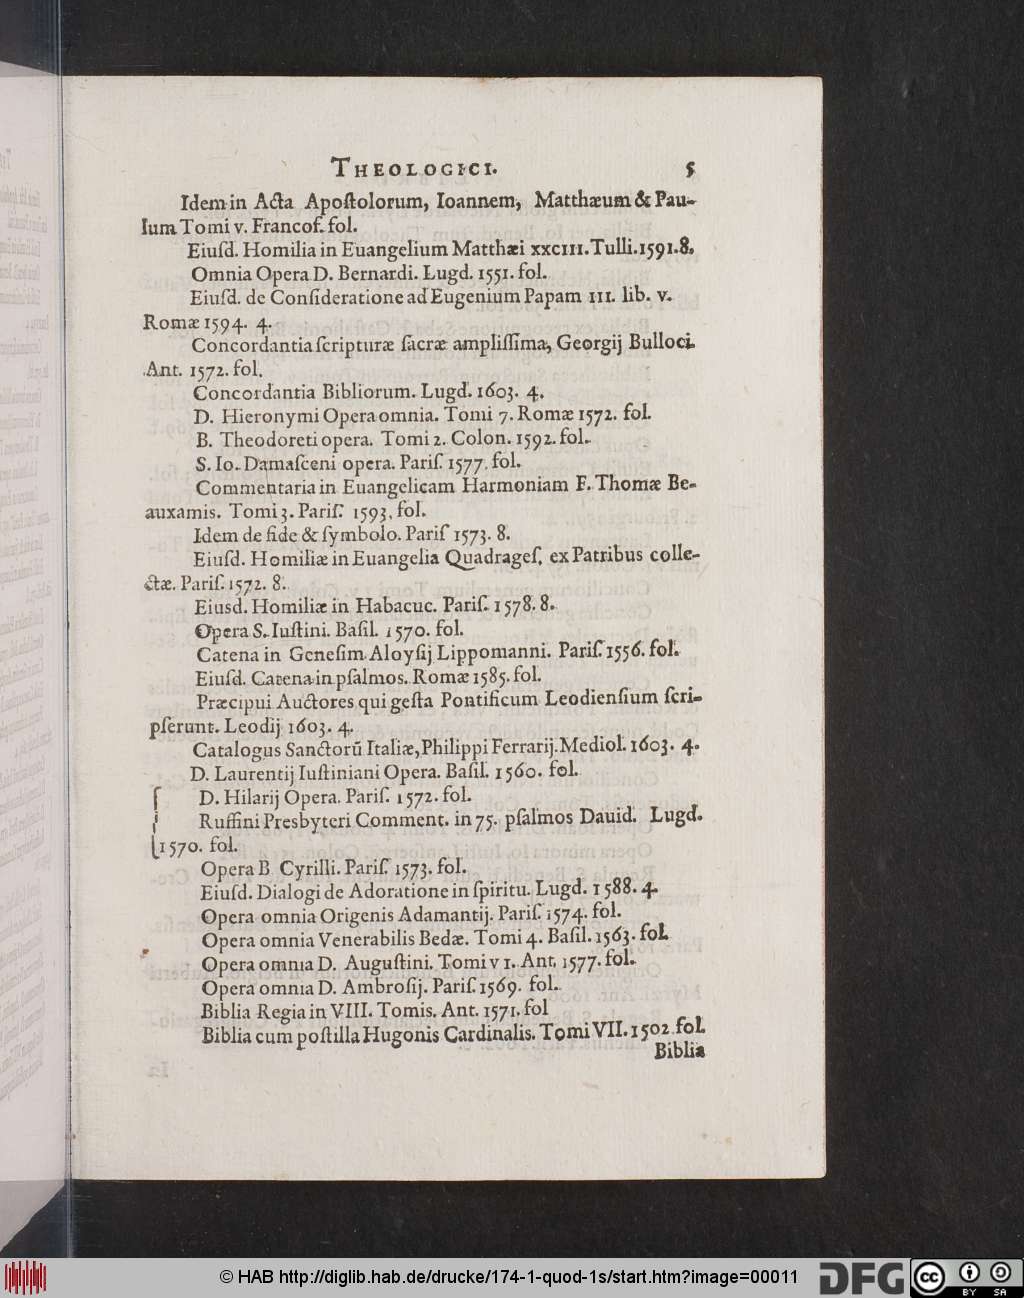 THEOLOGICI. 5
Idem in Acta Apoſtolorum, Ioannem, Matthæum & Pau-
lum Tomi v. Francof. fol.
Eiuſd. Homilia in Euangelium Matthæi xxciii. Tulli. 1591. 8.
Omnia Opera D. Bernardi. Lugd. 1551. fol.
Eiuſd. de Conſideratione ad Eugenium Papam III. lib. v.
Romæ 1594. 4.
Concordantia ſcripturæ ſacræ ampliſſima, Georgij Bulloci.
Ant. 1572. fol.
Concordantia Bibliorum. Lugd. 1603. 4.
D. Hieronymi Opera omnia. Tomi 7. Romæ 1572. fol.
B. Theodoreti opera. Tomi 2. Colon. 1592. fol.
S. Io. Damaſceni opera. Pariſ. 1577. fol.
Commentaria in Euangelicam Harmoniam F. Thomæ Be-
auxamis. Tomi 3. Pariſ. 1593. fol.
Idem de fide & ſymbolo. Pariſ 1573. 8.
Eiuſd. Homiliæ in Euangelia Quadrageſ. ex Patribus colle-
ctæ. Pariſ. 1572. 8.
Eiusd. Homiliæ in Habacuc. Pariſ. 1578. 8.
Opera S. Iuſtini. Baſil. 1570. fol.
Catena in Geneſim Aloyſij Lippomanni. Pariſ. 1556. fol.
Eiuſd. Catena in pſalmos. Romæ 1585. fol.
Præcipui Auctores qui geſta Pontificum Leodienſium ſcri-
pſerunt. Leodij 1603. 4.
Catalogus Sanctorũ Italiæ, Philippi Ferrarij. Mediol. 1603. 4.
D. Laurentij Iuſtiniani Opera. Baſil. 1560. fol.
D. Hilarij Opera. Pariſ. 1572. fol.
Ruffini Presbyteri Comment. in 75. pſalmos Dauid. Lugd.
1570. fol.
Opera B Cyrilli. Pariſ. 1573. fol.
Eiuſd. Dialogi de Adoratione in ſpiritu. Lugd. 1588. 4.
Opera omnia Origenis Adamantij. Pariſ. 1574. fol.
Opera omnia Venerabilis Bedæ. Tomi 4. Baſil. 1563. fol.
Opera omnia D. Auguſtini. Tomi VI. Ant. 1577. fol.
Opera omnia D. Ambroſij. Pariſ. 1569. fol.
Biblia Regia in VIII. Tomis. Ant. 1571. fol
Biblia cum poſtilla Hugonis Cardinalis. Tomi VII. 1502 fol.
Biblia
© HAB http://diglib.hab.de/drucke/174-1-quod-1s/start.htm?image=00011
DFG
cc BY SA